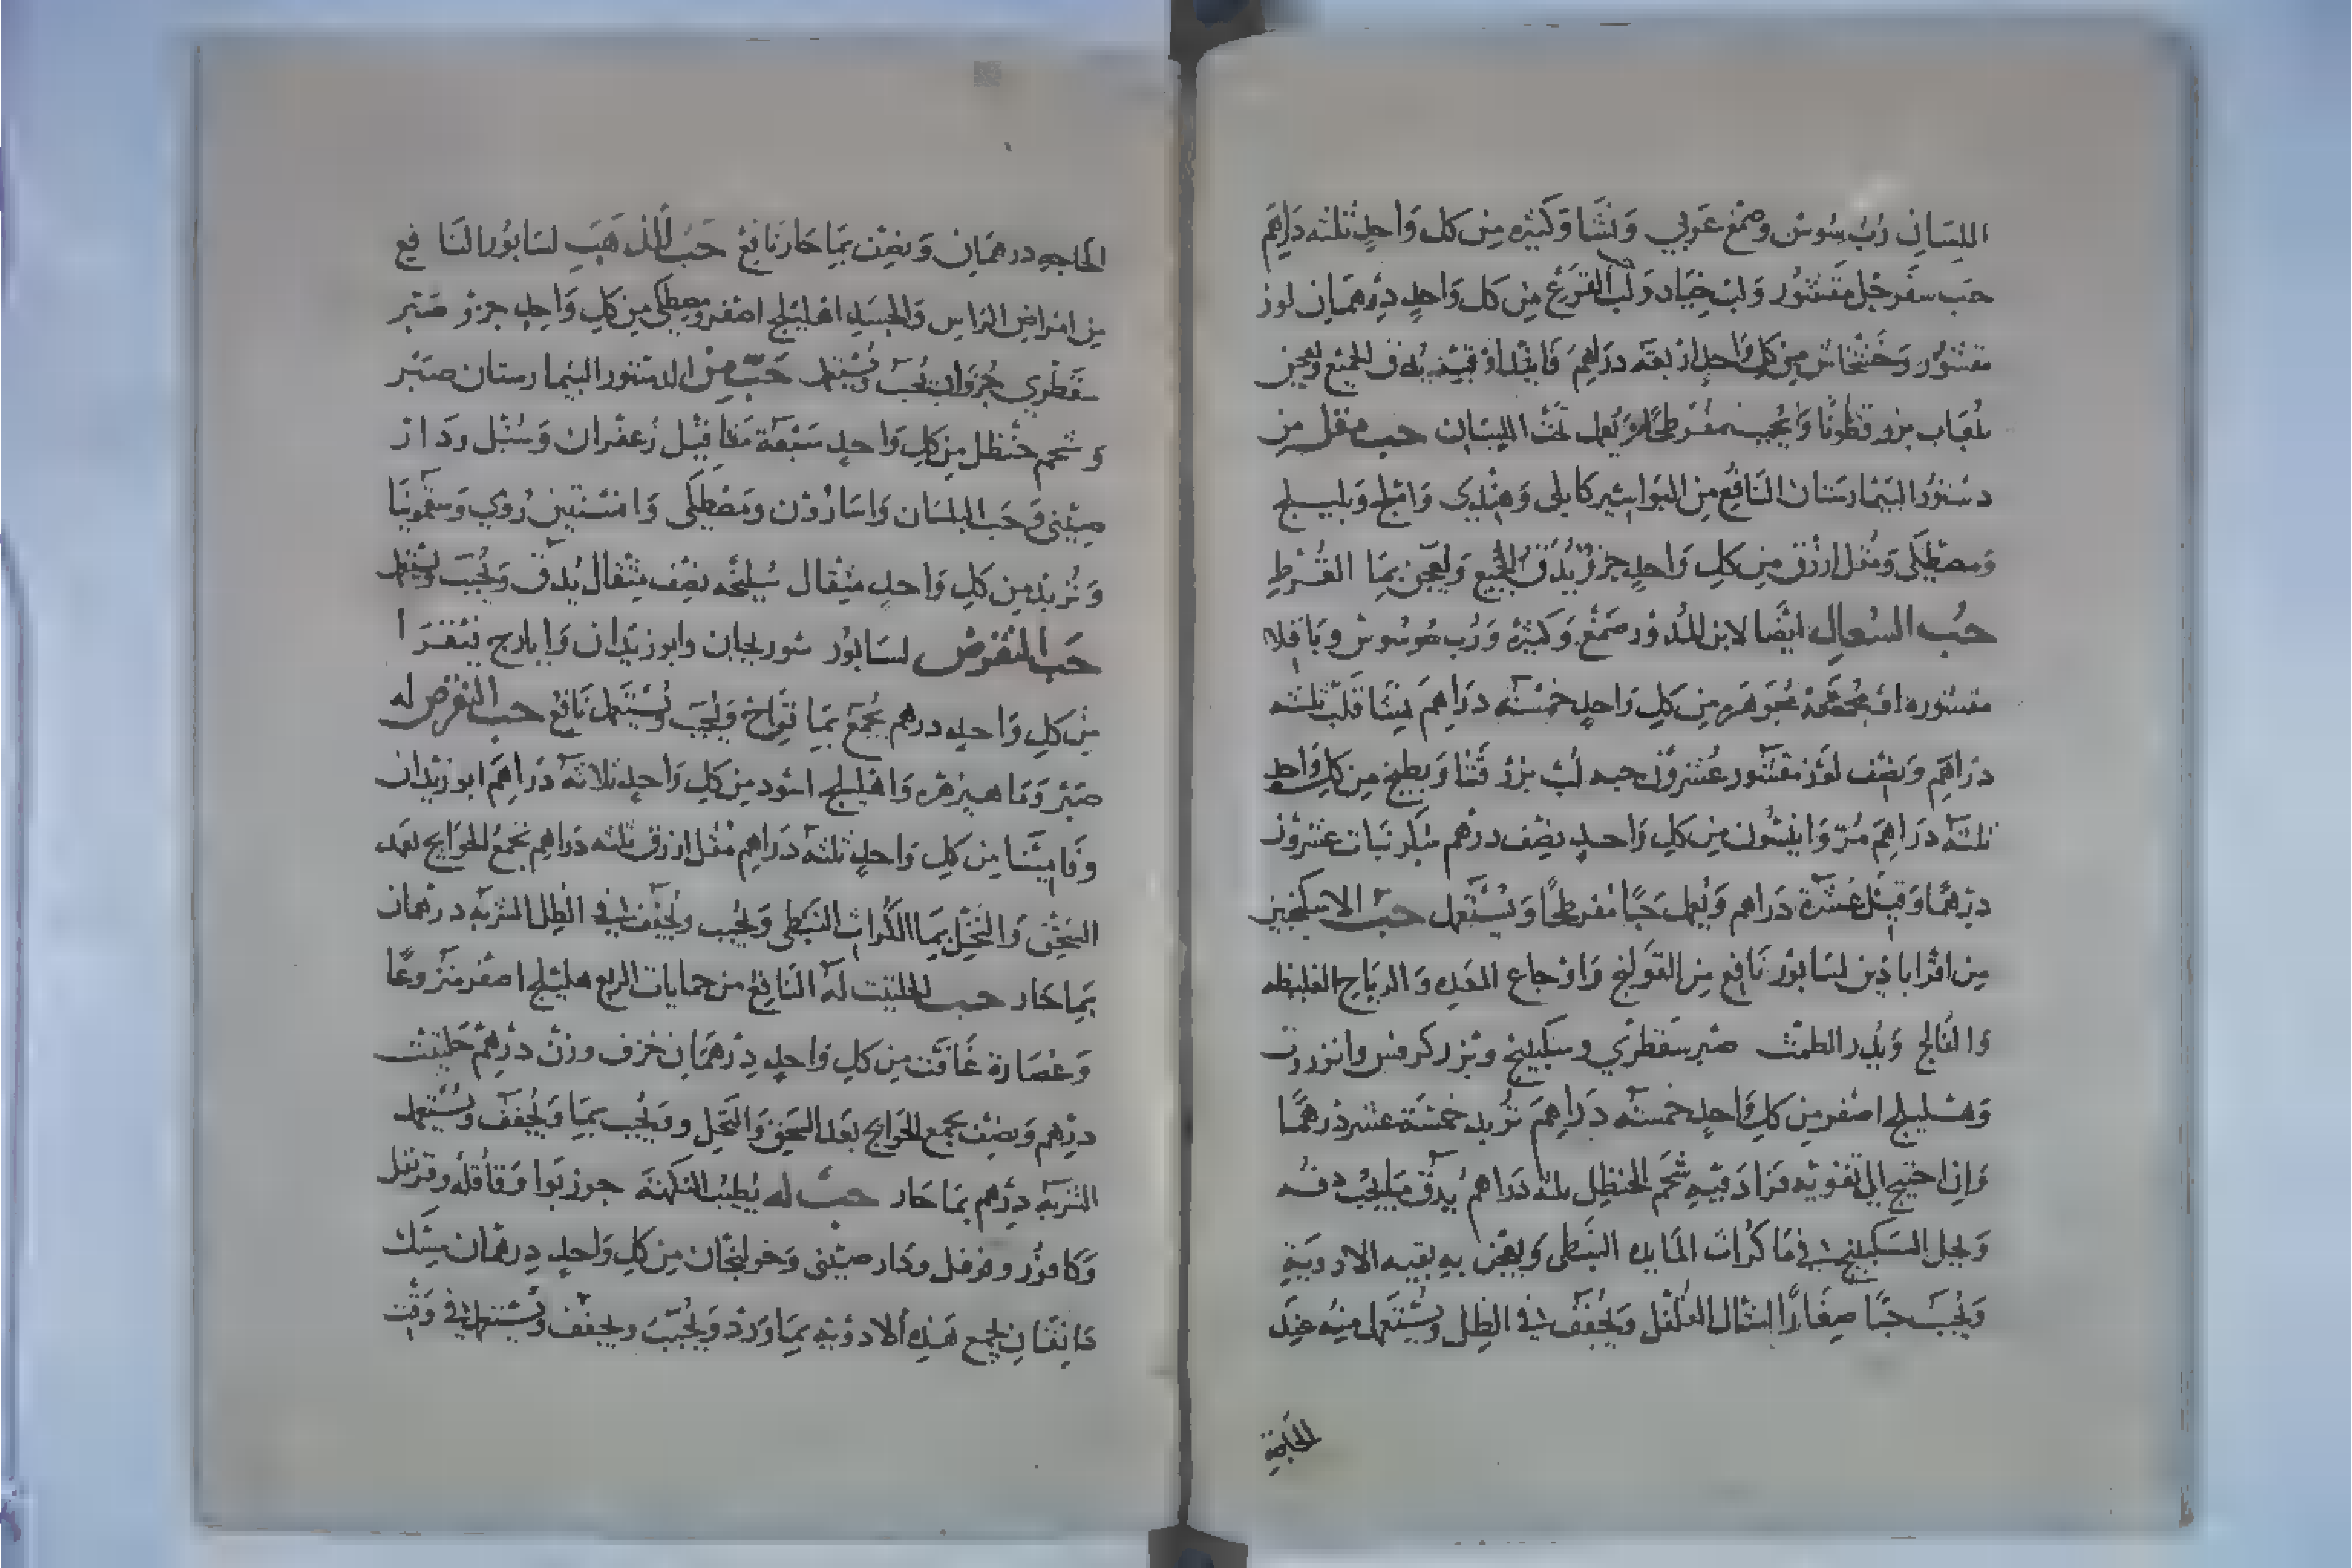 اللسان رب سوس وصمغ عربي ونشا وكثيره من كل واحد ثلثه دراهم
حب سفرجل مقشور ولب خيار ولب القرع من كل واحد درهمان لوز
مقشور وخشخاش من كل واحد اربعة دراهم فانيذ اوقيه يدق الجميع ويعجن
بلعاب بزر قطونا ويحبب مفرطحا ويعمل تحت اللسان حب مقل من
دستور البيمارستان النافع من البواسير كابلي وهندي واملج وبليلج
ومصطكى ومقل ازرق من كل واحد جزو يدق الجميع ويعجن بما القرط
حب السعال ايضا لابن صمغ وكثيره ورب سوس وباقلا
مقشوره من كل واحد خمسة دراهم نشا قلب ثلثه
دراهم ونصف لوز مقشور عشرون حبه لب بزر قثا وبطيخ من كل واحد
ثلثه دراهم مر وانيسون من كل واحد نصف درهم سكر نبات عشرون
درهما وقيل عشرة دراهم ويعمل حبا مفرطحا ويستعمل حب الاسكنجبين
من اقراباذين لسابور نافع من القولنج واوجاع المعده والرياح الغليظه
والفالج ويدر الطمث صبر سقطري وسكبينج وبزر كرفس وانزروت
وهليلج اصفر من كل واحد خمسه دراهم تربد خمسة عشر درهما
وان احتيج الي تقويه فزاد فيه شحم الحنظل ثلثه دراهم يدق مايجب دقه
ويحل السكبينج في ما كراث المايده النبطي ويعجن به بقيه الادوية
ويحبب حبا صغارا امثال الفلفل ويجفف في الظل ويستعمل منه عند
الحاجة
الحاجه درهمان ونصف بما حار نافع حب الذهب لسابور النافع
من امراض الراس والجسد اهليلج اصفر ومصطكى من كل واحد جزؤ صبر
سقطري جزوان يحبب ويستعمل حب من الدستور البيمارستان صبر
وشحم حنظل من كل واحد سبعة مثاقيل زعفران وسنبل ودار
صيني وحب البلسان واسارون ومصطكى وافسنتين رومي وسقمونيا
وتربد من كل واحد مثقال سليخه نصف مثقال يدق ويحبب ويستعمل
حب النقرص لسابور سورنجان وابوزيدان وايارج فيقرا
من كل واحد درهم يجمع بما ويحبب ويستعمل نافع حب النقرص له
صبر وماهيزهره واهليلج اسود من كل واحد ثلاثة دراهم ابوزيدان
من كل واحد ثلثه دراهم مقل ازرق ثلثه دراهم تجمع الحوايج بعد
السحق والنخل بما الكراث النبطي ويحبب ويجفف في الظل الشربه درهمان
بما حار حب الحلتيت له النافع من حمايات الربع هليلج اصفر منزوعا
وعصارة غافت من كل واحد درهمان خزف وزن درهم حلتيت
درهم ونصف يجمع الحوايج بعد السحق والنخل ويحبب بما ويجفف ويستعمل
الشربه درهم بما حار حب له يطيب النكهة جوزبوا وقاقله وقرنفل
وكافور وفوفل ودار صيني وخولنجان من كل واحد درهمان مسك
دانقان يجمع هذه الادويه بما ورد ويحبب ويجفف ويستعمل في وقت